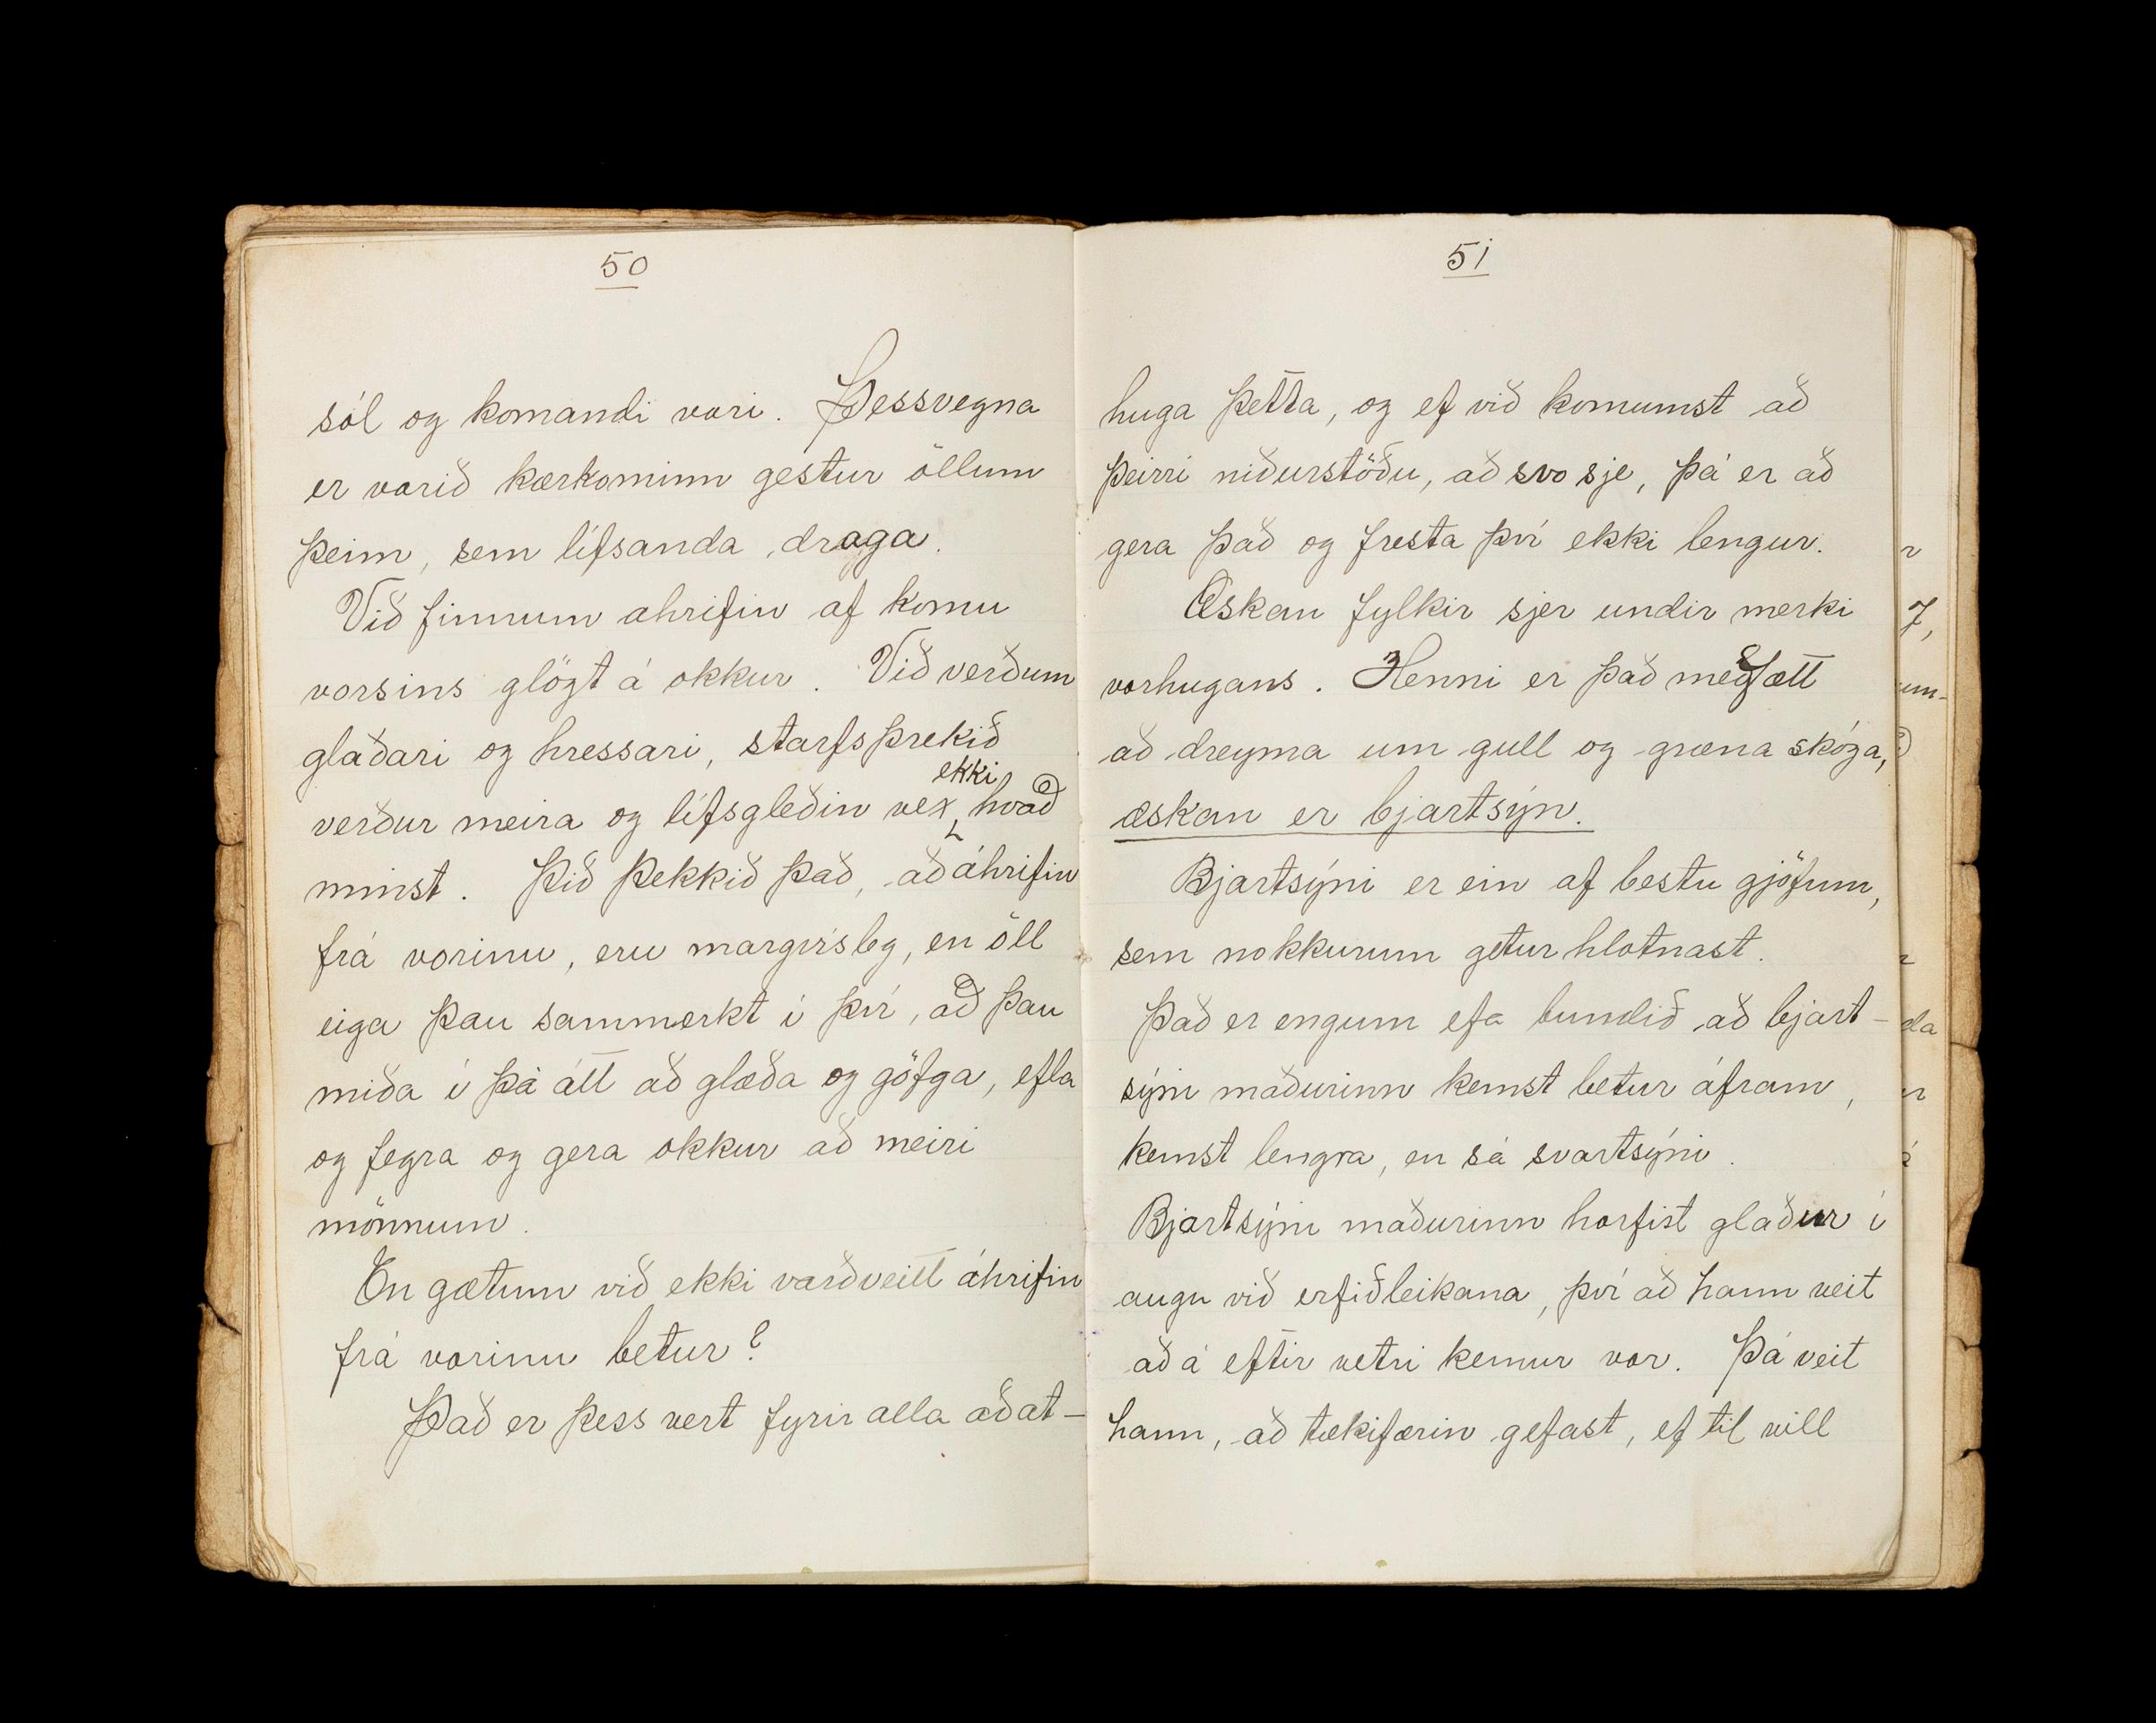 50
sól og komandi vori. Þessvegna
er vorið kærkominn gestur öllum
þeim, sem lífsanda draga.
Við finnum ahrifin af komu
vorsins glögt á okkur. Við verðum
glaðari og hressari, starfsþrekið
verður meira og lífsgleðin vex ekki hvað
minst. Þið þekkið það, að áhrifin
frá vorinu, eru margvísleg, en öll
eiga þau sammerkt í því, að þau
miða í þá átt að glæða og göfga, efla
og fegra og gera okkur að meiri
mönnum.
En gætum við ekki varðveitt áhrifin
frá vorinu betur?
Það er þess vert fyrir alla að at-
51
huga þetta, og ef við komumst að
þeirri niðurstöðu, að svo sje, þá er að
gera það og fresta því ekki lengur.
Æskan fylkir sjer undir merki
vorhugans. Henni er það meðfætt
að dreyma um gull og græna skóga,
æskan er bjartsýn.
Bjartsýni er ein af bestu gjöfum,
sem nokkurum getur hlotnast.
Það er engum efa bundið að bjart-
sýni maðurinn kemst betur áfram,
kemst lengra, en sá svartsýni.
Bjartsýni maðurinn horfist glaður í
augu við erfiðleikana, því að hann veit
að á eftir vetri kemur vor. Þá veit
hann, að tækifærin gefast, ef til vill